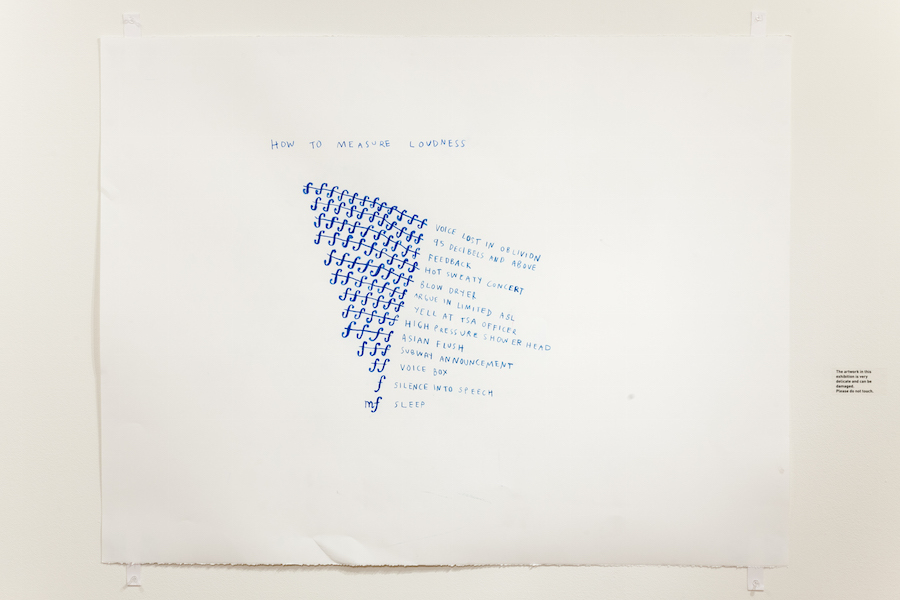 HOW TO MEASURE LOUDNESS
VOICE LOST IN OBLIVION
95 DECIBELS AND ABOVE
FEEDBACK
HOT SWEATY CONCERT
BLOW DRYER
ARGUE IN LIMITED ASL
YELL AT TSA OFFICER
HIGH PRESSURE SHOWER HEAD
ffff ASIAN FLUSH
fff SUBWAY ANNOUNCEMENT
ff VOICE BOX
f SILENCE INTO SPEECH
mf SLEEP
The artwork in this
exhibition is very
delicate and can be
damaged.
Please do not touch.